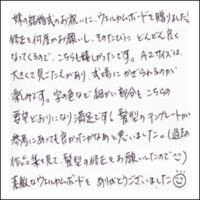 妹の結婚式のお祝いに、ウェルカムボードを贈りました!
修正を何度かお願いし、そのたびに どんどん良く
なってくるので、こちらも嬉しかったです。A2サイズは、
大きくて見ごたえがあり、式場にかざられるのが
楽しみです。字の色など細かい部分もこちらの
要望どおりになり満足です。髪型のテンプレートが
参考にあっても良かったかなぁと思いました。(過去の
作品集を見て、髪型の修正をお願いしたので)
素敵なウェルカムボードを ありがとうございました